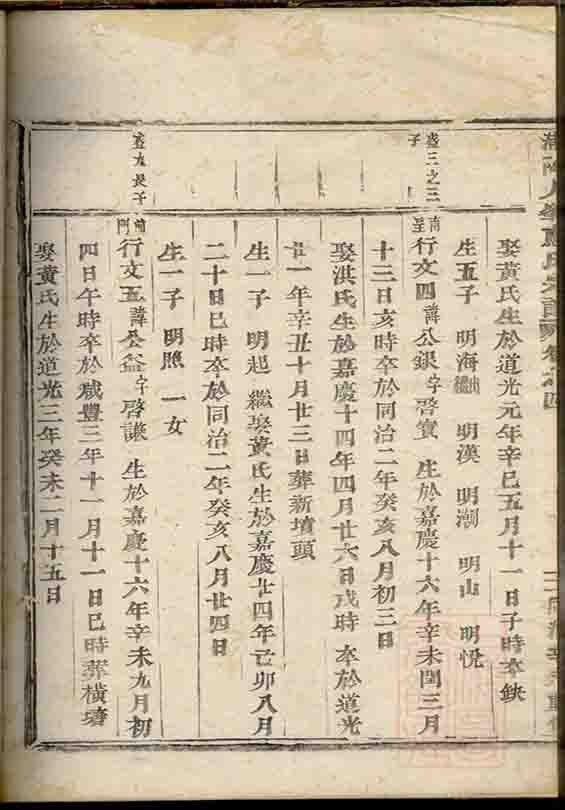 氏宗譜
娶黃氏生於道光元年辛巳五月十一日子時卒缺
生五子 明海出繼 明漢 明潮 明山 明悅
盛三之三子
南星行文四諱公銀字啓寶 生於嘉慶十六年辛未閏三月
十三日亥時卒於同治二年癸亥八月初三日
娶洪氏生於嘉慶十四年四月廿六日戌時 卒於道光
廿一年辛丑十月廿三日葬新墳頭
生一子 明起 繼娶黃氏生於嘉慶廿四年己卯八月
二十日巳時卒於同治二年癸亥八月廿四日
生一子 明照 一女
盛九長子
南門行文五諱公益字啓謙 生於嘉慶十六年辛未九月初
四日午時卒於咸豐三年十一月十一日巳時葬橫塘
娶黃氏生於道光三年癸未二月十五日